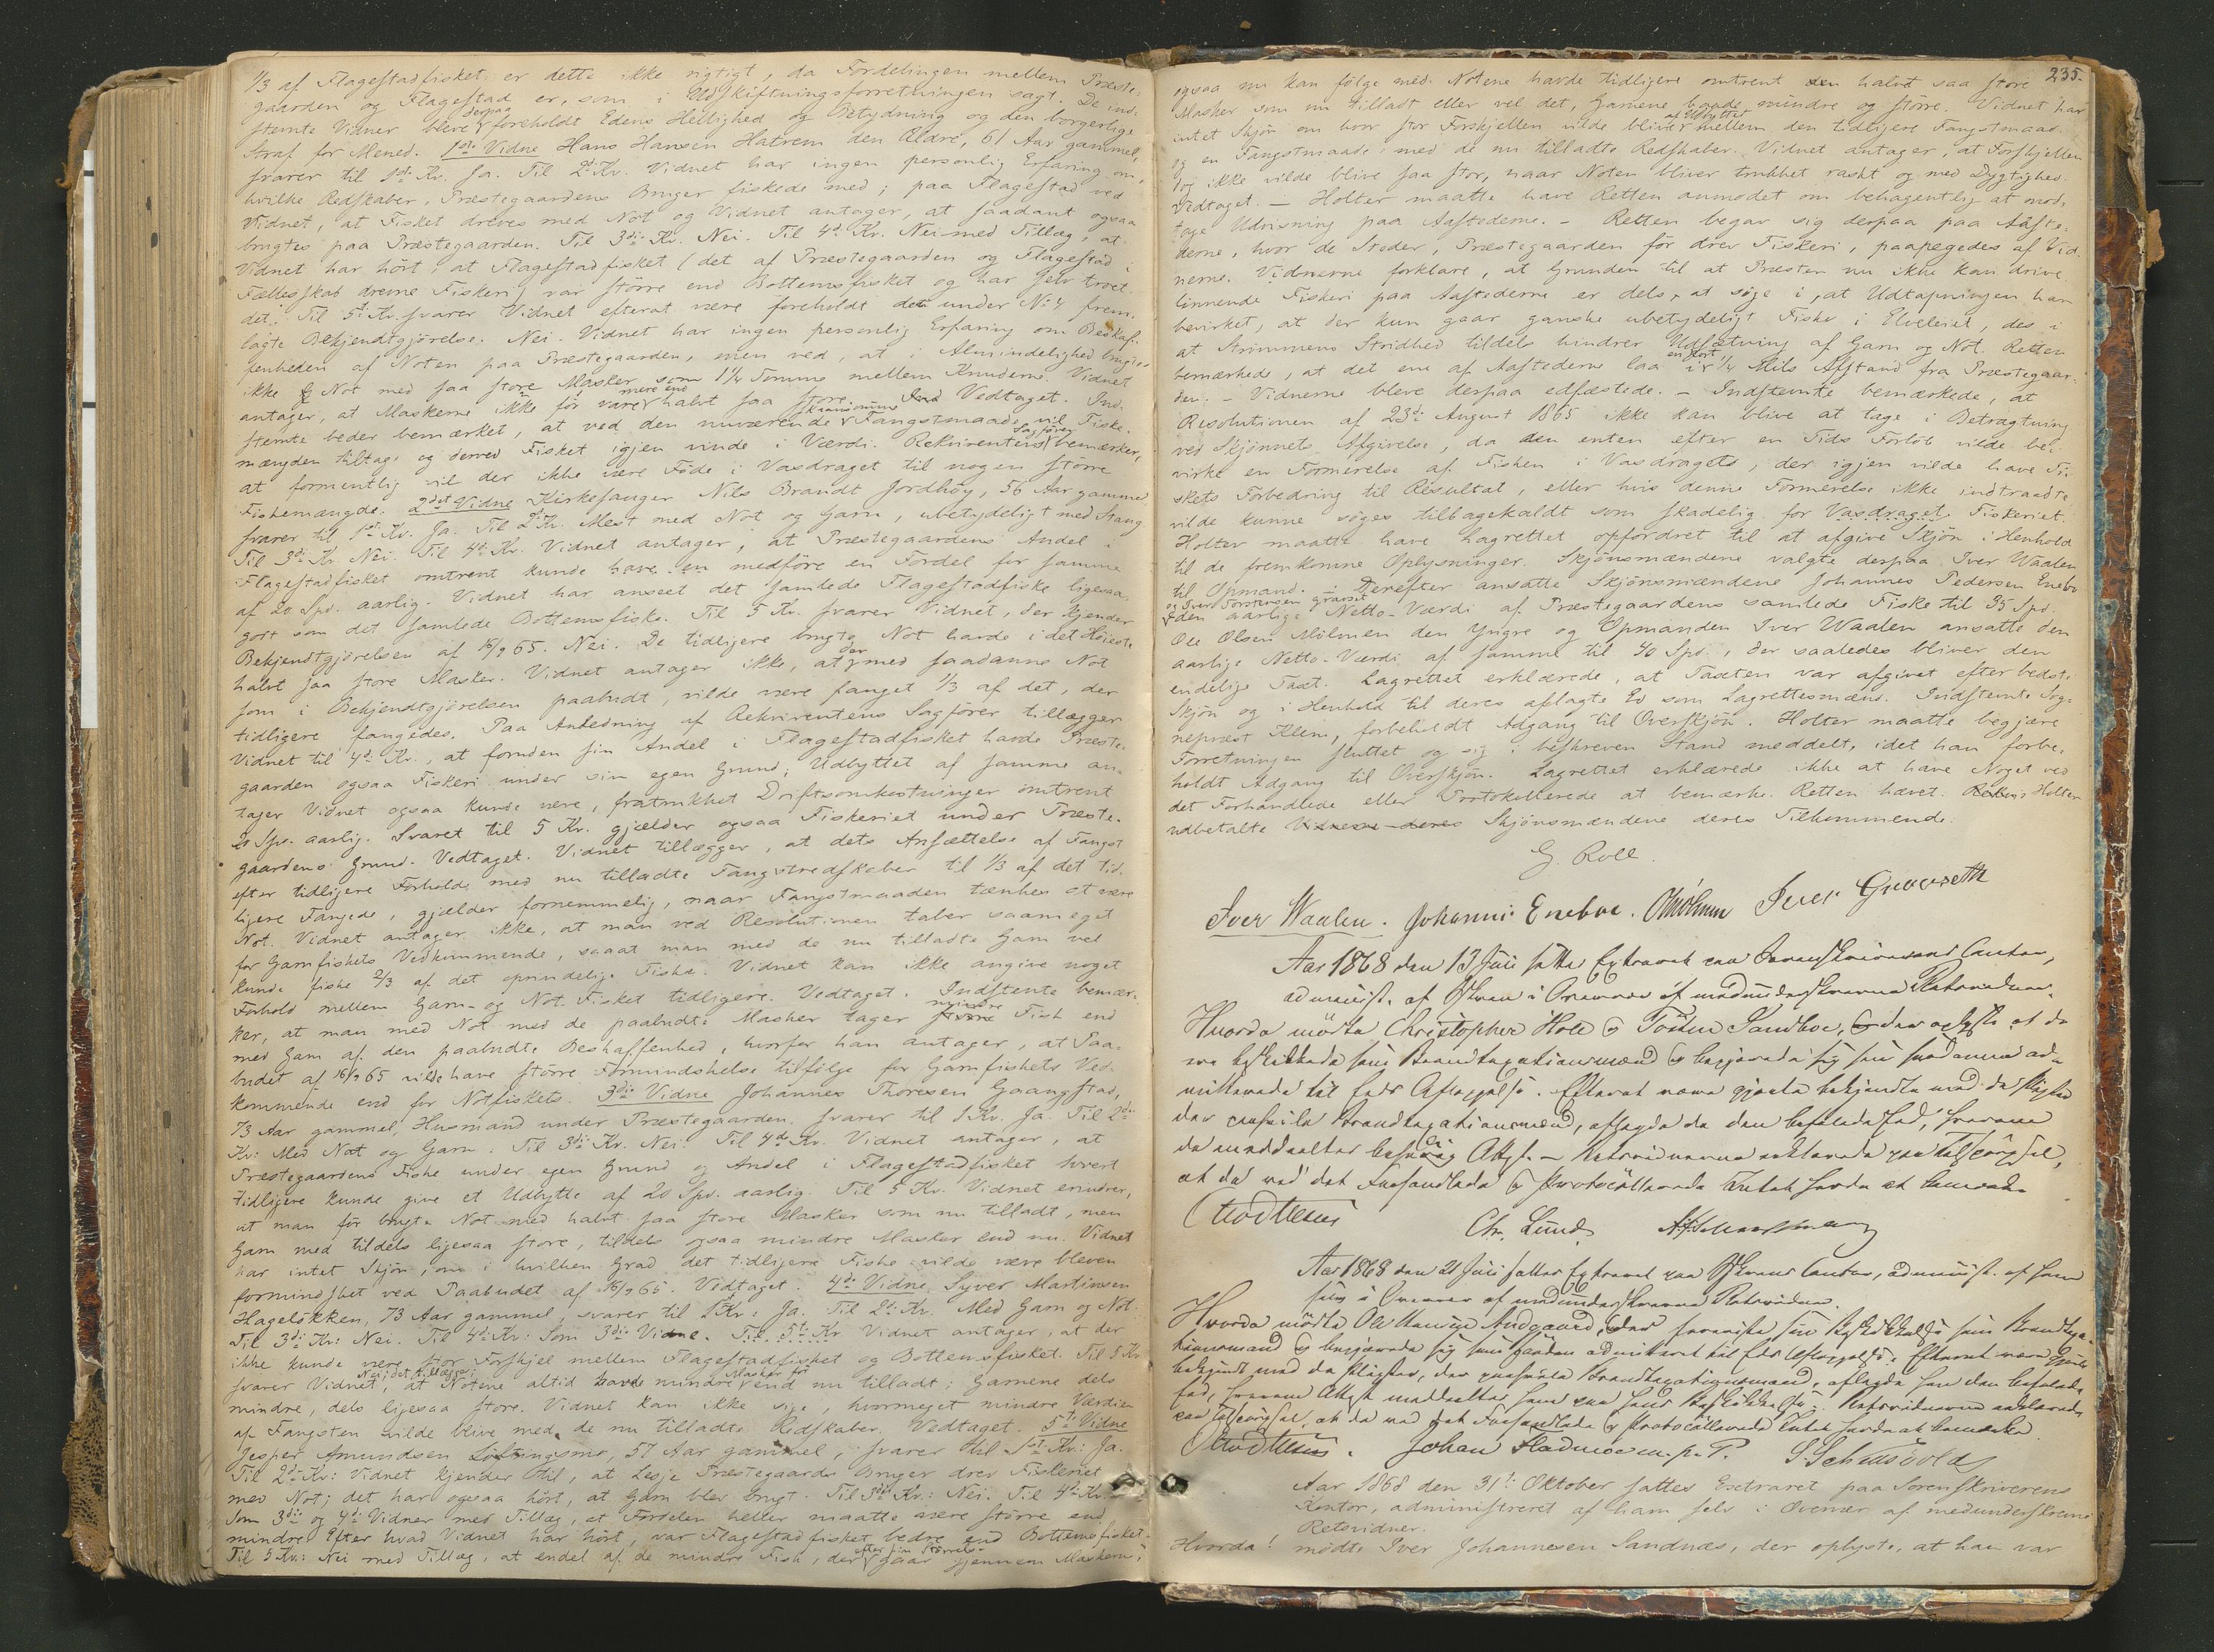 1/3 af Flagestadfisket er dette ikke rigtigt, da Fordelingen mellem Præste-
gaarden og Flagestad er, som i Udskiftningsforretningen sagt. De ind-
stemte Vidner bleve derpaa foreholdt Edens Hellighed og Betydning og den borgerlige
Straf for Mened. 1ste Vidne Hans Hansen Hatrem den Ældre, 61 Aar gammel,
svarer til 1ste Kv. Ja. Til 2d Kv. Vidnet har ingen personlig Erfaring om,
hvilke Redskaber, Præstegaardens Bruger fiskede med; paa Flagestad ved
Vidnet, at Fisket dreves med Not og Vidnet antager, at saadant ogsaa
brugtes paa Præstegaarden. Til 3die Kv. Nei. Til 4de Kv. Nei med Tillæg, at
Vidnet har hört, at Flagestadfisket (det af Præstegaarden og Flagestad i
Fællesskab drevne Fiskeri) var större end Bottemsfisket og har selv troet
det. Til 5te Kv. svarer Vidnet efterat være foreholdt den under No 4 frem-
lagte Bekjendtgjörelse. Nei. Vidnet har ingen personlig Erfaring om Beskaf-
fenheden af Noten paa Præstegaarden, men ved, at i Almindelighed brugtes
ikke Not med saa store Masker som 1 1/4 Tomme mellem Knuderne. Vidnet
antager, at Maskerne ikke för vare mere end halvt saa store. Vedtaget. Ind-
stemte beder bemærket, at ved den nuværende skaansomme Fangstmaade vil Fiske-
mængden tiltage og derved Fisket igjen vinde i Værdi. Rekvirentens Sagförer bemærker,
at formentlig vil der ikke være Föde i Vasdraget til nogen större
Fiskemængde. 2det Vidne Kirkesanger Nils Brandt Jordhöy, 56 Aar gammel
svarer til 1ste Kv. Ja. Til 2det Kv. Mest med Not og Garn, ubetydeligt med Stang.
Til 3die Kv. Nei. Til 4de Kv. Vidnet antager, at Præstegaardens Andel i
Flagestadfisket omtrent kunde have en medföre en Fordel for samme
af 20 Spd. aarlig. Vidnet har anseet det samlede Flagestadfiske ligesaa
godt som det samlede Bottemsfiske. Til 5 Kv. svarer Vidnet, der kjender
Bekjendtgjörelsen af 16/9 65. Nei. De tidligere brugte Not havde i det Höieste
halvt saa store Masker. Vidnet antager ikke, at der med saadanne Not
som i Bekjendtgjörelsen paabudt, vilde være fanget 1/3 af det, der
tidligere fangedes. Paa Anledning af Rekvirentens Sagförer tillægger
Vidnet til 4de Kv., at foruden sin Andel i Flagestadfisket havde Præste-
gaarden ogsaa Fiskeri under sin egen Grund; Udbyttet af samme an-
tager Vidnet ogsaa kunde være, fratrukket Driftsomkostninger omtrent
20 Spd. aarlig. Svaret til 5 Kv. gjælder ogsaa Fiskeriet under Præste-
gaardens Grund. Vedtaget. Vidnet tillægger, at dets Ansættelse af Fangst
efter tidligere Forholde med nu tilladte Fangstredskaber til 1/3 af det tid-
ligere Fangede, gjælder fornemmelig, naar Fangstmaaden tænkes at være
Not. Vidnet antager ikke, at man ved Resolutionen taber saameget
for Garnfiskets Vedkommende, saaat man med de nu tilladte Garn vel
kunde fiske 2/3 af det oprindelige Fiske. Vidnet kan ikke angive noget
Forhold mellem Garn- og Not-Fisket tidligere. Vedtaget. Indstemte bemær-
ker, at man med Not med de paabudte Masker tager mindre Fisk end
med Garn af den paabudte Beskaffenhed, hvorfor han antager, at Paa-
budet af 16/9 65 vilde have större Formindskelse tilfölge for Garnfiskets Ved-
kommende end for Notfiskets. 3die Vidne Johannes Thoresen Gaangstad,
73 Aar gammel, Husmand under Præstegaarden, svarer til 1 Kv. Ja. Til 2de
Kv: Med Not og Garn. Til 3die Kv. Nei. Til 4de Kv. Vidnet antager, at
Præstegaardens Fiske under egen Grund og Andel i Flagestadfisket hvert
tidligere kunde give et Udbytte af 20 Spd. aarlig. Til 5 Kv. Vidnet erindrer,
at man för brugte Not med halvt saa store Masker som nu tilladt, men
Garn med tildels ligesaa store, tildels ogsaa mindre Masker end nu. Vidnet
har intet Skjön, om i hvilken Grad det tidligere Fiske vilde være bleven
formindsket ved Paabudet af 16/9 65. Vedtaget. 4de Vidne, Syver Martinsen
Hagelökken, 73 Aar gammel, svarer til 1ste Kv: Ja. Til 2d Kv. Med Garn og Not.
Til 3die Kv: Nei. Til 4de Kv: Som 3die Vidne. Til 5te Kv Vidnet antager, at der
ikke kunde være stor Forskjel mellem Flagestadfisket og Bottemsfisket. Til 5 Kv
svarer Vidnet, Nei; det tillægger, at Notene altid havde mindre Masker för end nu tilladt; Garnene dels
mindre, dels ligesaa store. Vidnet kan ikke sige, hvormeget mindre Værdien
af Fangsten vilde blive med de nu tilladte Redskaber. Vedtaget. 5te Vidne
Jesper Amundsen Löftingsmo, 57 Aar gammel, svarer til 1ste Kv: Ja.
Til 2de Kv: Vidnet kjender til, at Lesje Præstegaards Bruger drev Fiskeriet
med Not; det har ogsaa hört, at Garn blev brugt. Til 3die Kv.: Nei. Til 4de Kv.
Som 3die og 4de Vidner med Tillæg, at Fordelen heller maatte være större end
mindre. Efter hvad Vidnet har hört, var Flagestadfisket bedre end Bottemsfisket.
Til 5 Kv: Nei med Tillæg, at endel af de mindre Fisk, der efter sin Størrelse gaar gjennem Maskerne,
235.
ogsaa nu kan fölge med. Notene havde tidligere omtrent den halvt saa store
Masker som nu tilladt eller vel det, Garnene baade mindre og större. Vidnet har
intet Skjön om hvor stor Forskjellen vilde blive af Udbyttet mellem den tidligere Fangstmaade
og en Fangstmaade med de nu tilladte Redskaber. Vidnet antager, at Forskjellen
dog ikke vilde blive saa stor, naar Noten bliver trukket raskt og med Dygtighed.
Vedtaget. — Holter maatte have Retten anmodet om behagentlig at mod-
tage Udvisning paa Aastederne. — Retten begav sig derpaa paa Aaste-
derne, hvor de Steder, Præstegaarden för drev Fiskeri, paapegedes af Vid-
nerne. Vidnerne forklare, at Grunden til at Præsten nu ikke kan drive
lönnende Fiskeri paa Aastederne er dels at söge i, at Udtapningen har
bevirket, at der kun gaar ganske ubetydeligt Fiske i Elveleiet, des i
at Strömmens Stridhed tildels hindrer Udsætning af Garn og Not. Retten
bemærkede, at det ene af Aastederne laa i en stort 1/4 Mils Afstand fra Præstegaar-
den. — Vidnerne bleve derpaa edfæstede. — Indstemte bemærkede, at
Resolutionen af 23de August 1865 ikke kan blive at tage i Betragtning
ved Skjönnets Afgivelse, da den enten efter en Tids Forlöb vilde be-
virke en Formerelse af Fisken i Vasdraget, der igjen vilde have Fi-
skets Forbedring til Resultat, eller hvis denne Formerelse ikke indtraadte
vilde kunne söges tilbagekaldt som skadelig for Vasdraget Fiskeriet.
Holter maatte have Lagrettet opfordret til at afgive Skjön i Henhold
til de fremkomne Oplysninger. Skjönsmændene valgte derpaa Iver Waalen
til Opmand. — Derefter ansatte Skjönsmændene Johannes Pedersen Enebo
og Iver Torstensen Gravset
den aarlige Netto-Værdi af Præstegaardens samlede Fiske til 35 Spd.
Ole Olsen Mölmen den Yngre og Opmanden Iver Waalen ansatte den
aarlige Netto-Værdi af samme til 40 Spd., der saaledes bliver den
endelige Taxt. Lagrettet erklærede, at Taxten var afgivet efter bedste
Skjön og i Henhold til deres aflagte Ed som Lagrettesmænd. Indstemte Sog-
neprest Klem, forbeholdt Adgang til Overskjön. Holter maatte begjære
Forretningen sluttet og sig i beskreven Stand meddelt, idet han forbe-
holdt Adgang til Overskjön. Lagrettet erklærede ikke at have Noget ved
det Forhandlede eller Protokollerede at bemærke. Retten hævet. Holter
udbetalte Skjönsmændene deres Tilkommende.
G. Roll.
Iver Waalen. Johannis Eneboe. OMölmen Iver Gravseth
Aar 1868 den 13 Juli sattes Extraret paa Sorenskriverens Contor,
administ. af Fuldm. i Overvær af medunderskrevne Retsvidner.
Hvorda mödte Christopher Hole og Tosten Sandboe, der oplyste at de
vare beskikkede som Brandtaxationsmænd og begjærede sig som saadanne ad-
mitterede til Eds Aflæggelse. Efterat være gjorte bekjendte med de Pligter
der paahvile Brandtaxationsmænd, aflagde de den befalede Ed, hvorom
de meddeltes behørig Attest. — Retsvidnerne erklærede paa Tilspörgsel,
at de ved det Forhandlede og Protocollerede Intet havde at bemærke.
Chr. Lund
Aar 1868 den 21 Juli sattes Extraret paa Contor, administ. af ham
selv i Overvær af medunderskrevne Retsvidner.
Hvorda mödte Ole Andgaard, der foreviste sin Beskikkelse som Brandtaxa-
tionsmand og begjærede sig som saadan admitteret til Eds Aflæggelse. Efterat være gjort
bekjendt med de Pligter, der paahvile Brandtaxationsmænd, aflagde han den befalede
Ed, hvorom Attest meddeltes ham paa hans Beskikkelse. Retsvidnerne erklærede
paa Tilspörgsel, at de ved det Forhandlede og Protocollerede Intet havde at bemærke.
Johan Fladmoe m. p. P.
Aar 1868 den 31te Oktober sattes Extraret paa Sorenskriverens
Kontor, administreret af ham selv i Overvær af medunderskrevne
Retsvidner.
Hvorda! mödte Iver Johannesen Sandnæs, der oplyste, at han var